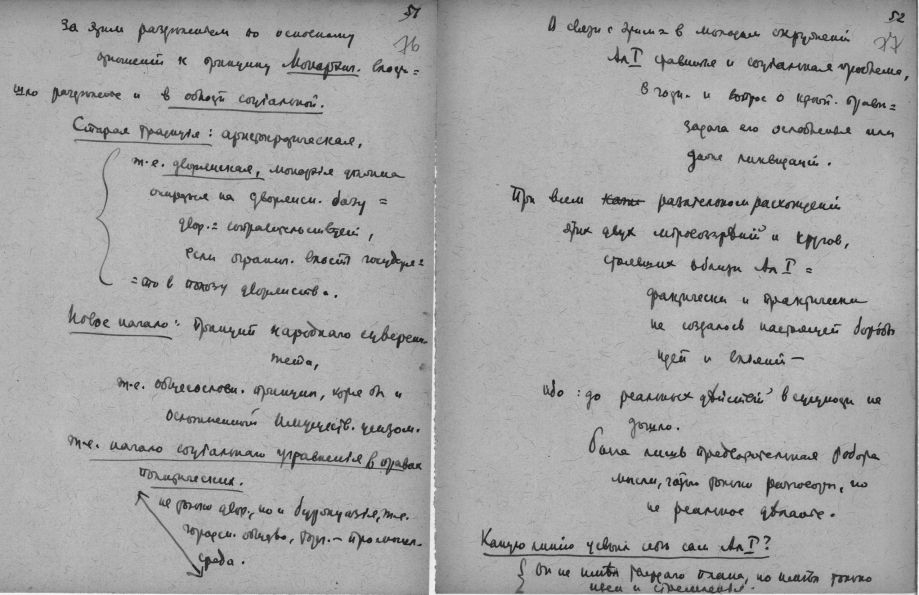 51
76
За этим разделением по основному
отношений к принципу Монархии. входи=
шло разделение и в области социальной.
Старая традиция: аристократическая,
т.е. дворянская, монархия должна
опираться на дворянск. базу =
двор.=
если огранич. власти государя=
=то в пользу дворянства.
Новое начало: Принцип народнаго суверени=
тета,
т.е. общесословн. принцип, хотя бы и
осложненный имуществ. цензом.
т.е. начало социальнаго уравнения в правах
политических.
не только двор., но и буржуазия, т.е.
городск. общество, торг. - промышл.
среда.
52
77
В связи с этим в молодом окружении
Ал I и социальная проблема,
в том ч. и вопрос о креп. праве=
задача его ослабления или
даже ликвидаций.
При всем разительном расхождений
этих двух мировоззрений и кругов,
стоявших вблизи Ал I =
фактически и практически
не создалось настоящей борьбы
идей и влияний —
ибо: до реальных действий в сущности не
дошло.
Была лишь предварительная работа
мысли, только разговоры, но
не реальное делание.
Какую линию усвоил себе сам Ал I?
Он не имел твердаго плана, но имел только
идеи и стремления.